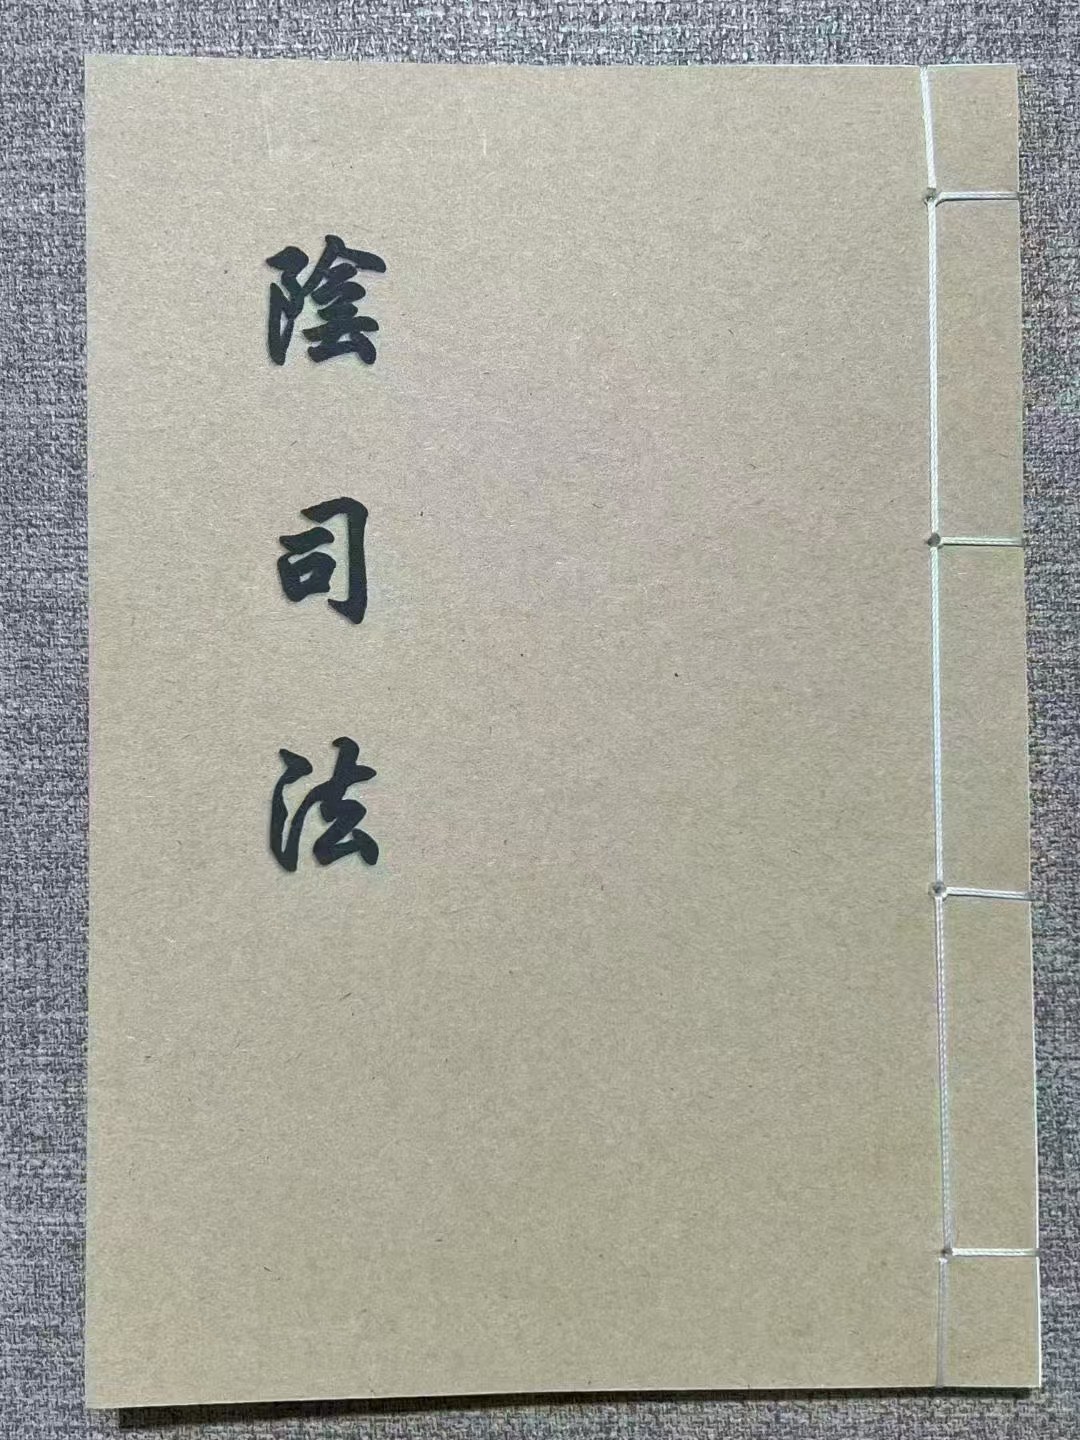 陰司法